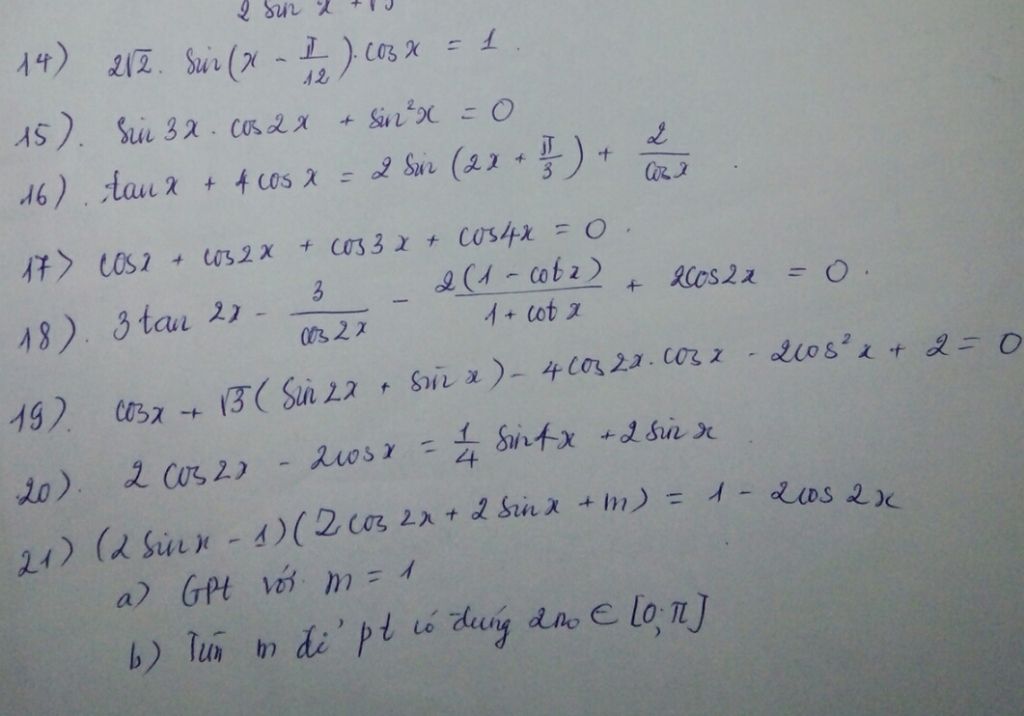 2 sin x + √3
14) 2√2. sin(x - π/12).cosx = 1.
15). sin3x. cos2x + sin²x = 0
16). tanx + 4cosx = 2 sin(2x + π/3) + 2/cosx.
17> cosx + cos2x + cos3x + cos4x = 0.
18). 3tan 2x - 3/cos2x - 2(1 - cotx)/1 + cotx + 2cos2x = 0.
19). cosx + √3(sin2x + sinx) - 4cos2x.cosx - 2cos²x + 2 = 0
20). 2cos2x - 2cosx = 1/4 sin4x + 2sinx
21) (2sinx - 1)(2cos2x + 2sinx + m) = 1 - 2cos2x
a) GPt với m = 1
b) Tìm m để pt có đúng 2no ∈ [0;π]